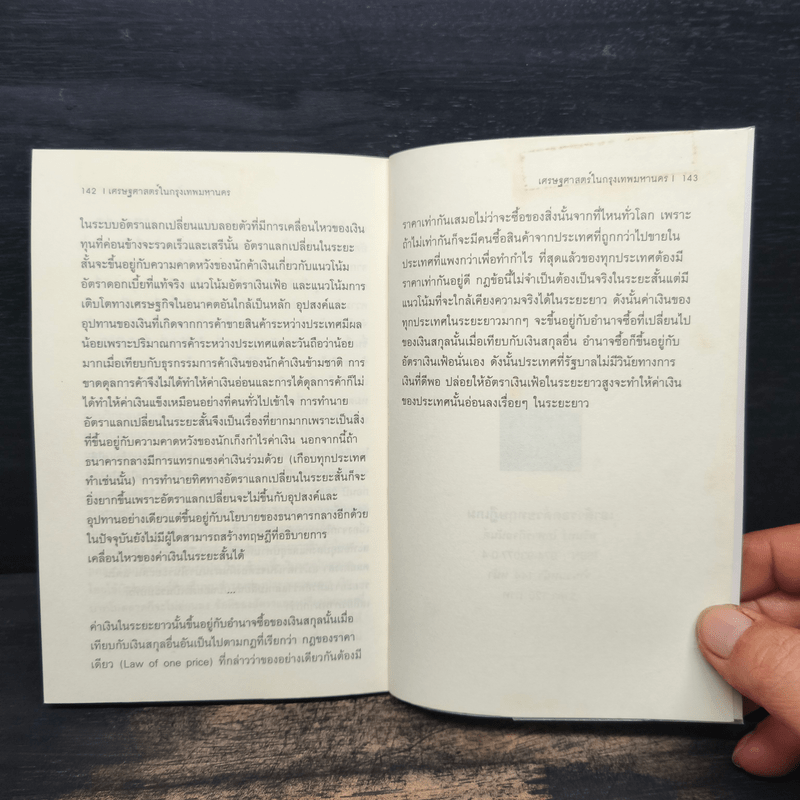 142 | เศรษฐศาสตร์ในกรุงเทพมหานคร
ในระบบอัตราแลกเปลี่ยนแบบลอยตัวที่มีการเคลื่อนไหวของเงิน
ทุนที่ค่อนข้างจะรวดเร็วและเสรีนั้น อัตราแลกเปลี่ยนในระยะ
สั้นจะขึ้นอยู่กับความคาดหวังของนักค้าเงินเกี่ยวกับแนวโน้ม
อัตราดอกเบี้ยที่แท้จริง แนวโน้มอัตราเงินเฟ้อ และแนวโน้มการ
เติบโตทางเศรษฐกิจในอนาคตอันใกล้เป็นหลัก อุปสงค์และ
อุปทานของเงินที่เกิดจากการค้าขายสินค้าระหว่างประเทศมีผล
น้อยเพราะปริมาณการค้าระหว่างประเทศแต่ละวันถือว่าน้อย
มากเมื่อเทียบกับธุรกรรมการค้าเงินของนักค้าเงินข้ามชาติ การ
ขาดดุลการค้าจึงไม่ได้ทำให้ค่าเงินอ่อนและการได้ดุลการค้าก็ไม่
ได้ทำให้ค่าเงินแข็งเหมือนอย่างที่คนทั่วไปเข้าใจ การทำนาย
อัตราแลกเปลี่ยนในระยะสั้นจึงเป็นเรื่องที่ยากมากเพราะเป็นสิ่ง
ที่ขึ้นอยู่กับความคาดหวังของนักเก็งกำไรค่าเงิน นอกจากนี้ถ้า
ธนาคารกลางมีการแทรกแซงค่าเงินร่วมด้วย (เกือบทุกประเทศ
ทำเช่นนั้น) การทำนายทิศทางอัตราแลกเปลี่ยนในระยะสั้นก็จะ
ยิ่งยากขึ้นเพราะอัตราแลกเปลี่ยนจะไม่ขึ้นกับอุปสงค์และ
อุปทานอย่างเดียวแต่ขึ้นอยู่กับนโยบายของธนาคารกลางอีกด้วย
ในปัจจุบันยังไม่มีผู้ใดสามารถสร้างทฤษฎีที่อธิบายการ
เคลื่อนไหวของค่าเงินในระยะสั้นได้
...
ค่าเงินในระยะยาวนั้นขึ้นอยู่กับอำนาจซื้อของเงินสกุลนั้นเมื่อ
เทียบกับเงินสกุลอื่นอันเป็นไปตามกฎที่เรียกว่า กฎของราคา
เดียว (Law of one price) ที่กล่าวว่าของอย่างเดียวกันต้องมี
เศรษฐศาสตร์ในกรุงเทพมหานคร | 143
ราคาเท่ากันเสมอไม่ว่าจะซื้อของสิ่งนั้นจากที่ไหนทั่วโลก เพราะ
ถ้าไม่เท่ากันก็จะมีคนซื้อสินค้าจากประเทศที่ถูกกว่าไปขายใน
ประเทศที่แพงกว่าเพื่อทำกำไร ที่สุดแล้วของทุกประเทศต้องมี
ราคาเท่ากันอยู่ดี กฎข้อนี้ไม่จำเป็นต้องเป็นจริงในระยะสั้นแต่มี
แนวโน้มที่จะใกล้เคียงความจริงได้ในระยะยาว ดังนั้นค่าเงินของ
ทุกประเทศในระยะยาวมากๆ จะขึ้นอยู่กับอำนาจซื้อที่เปลี่ยนไป
ของเงินสกุลนั้นเมื่อเทียบกับเงินสกุลอื่น อำนาจซื้อก็ขึ้นอยู่กับ
อัตราเงินเฟ้อนั่นเอง ดังนั้นประเทศที่รัฐบาลไม่มีวินัยทางการ
เงินที่ดีพอ ปล่อยให้อัตราเงินเฟ้อในระยะยาวสูงจะทำให้ค่าเงิน
ของประเทศนั้นอ่อนลงเรื่อยๆ ในระยะยาว